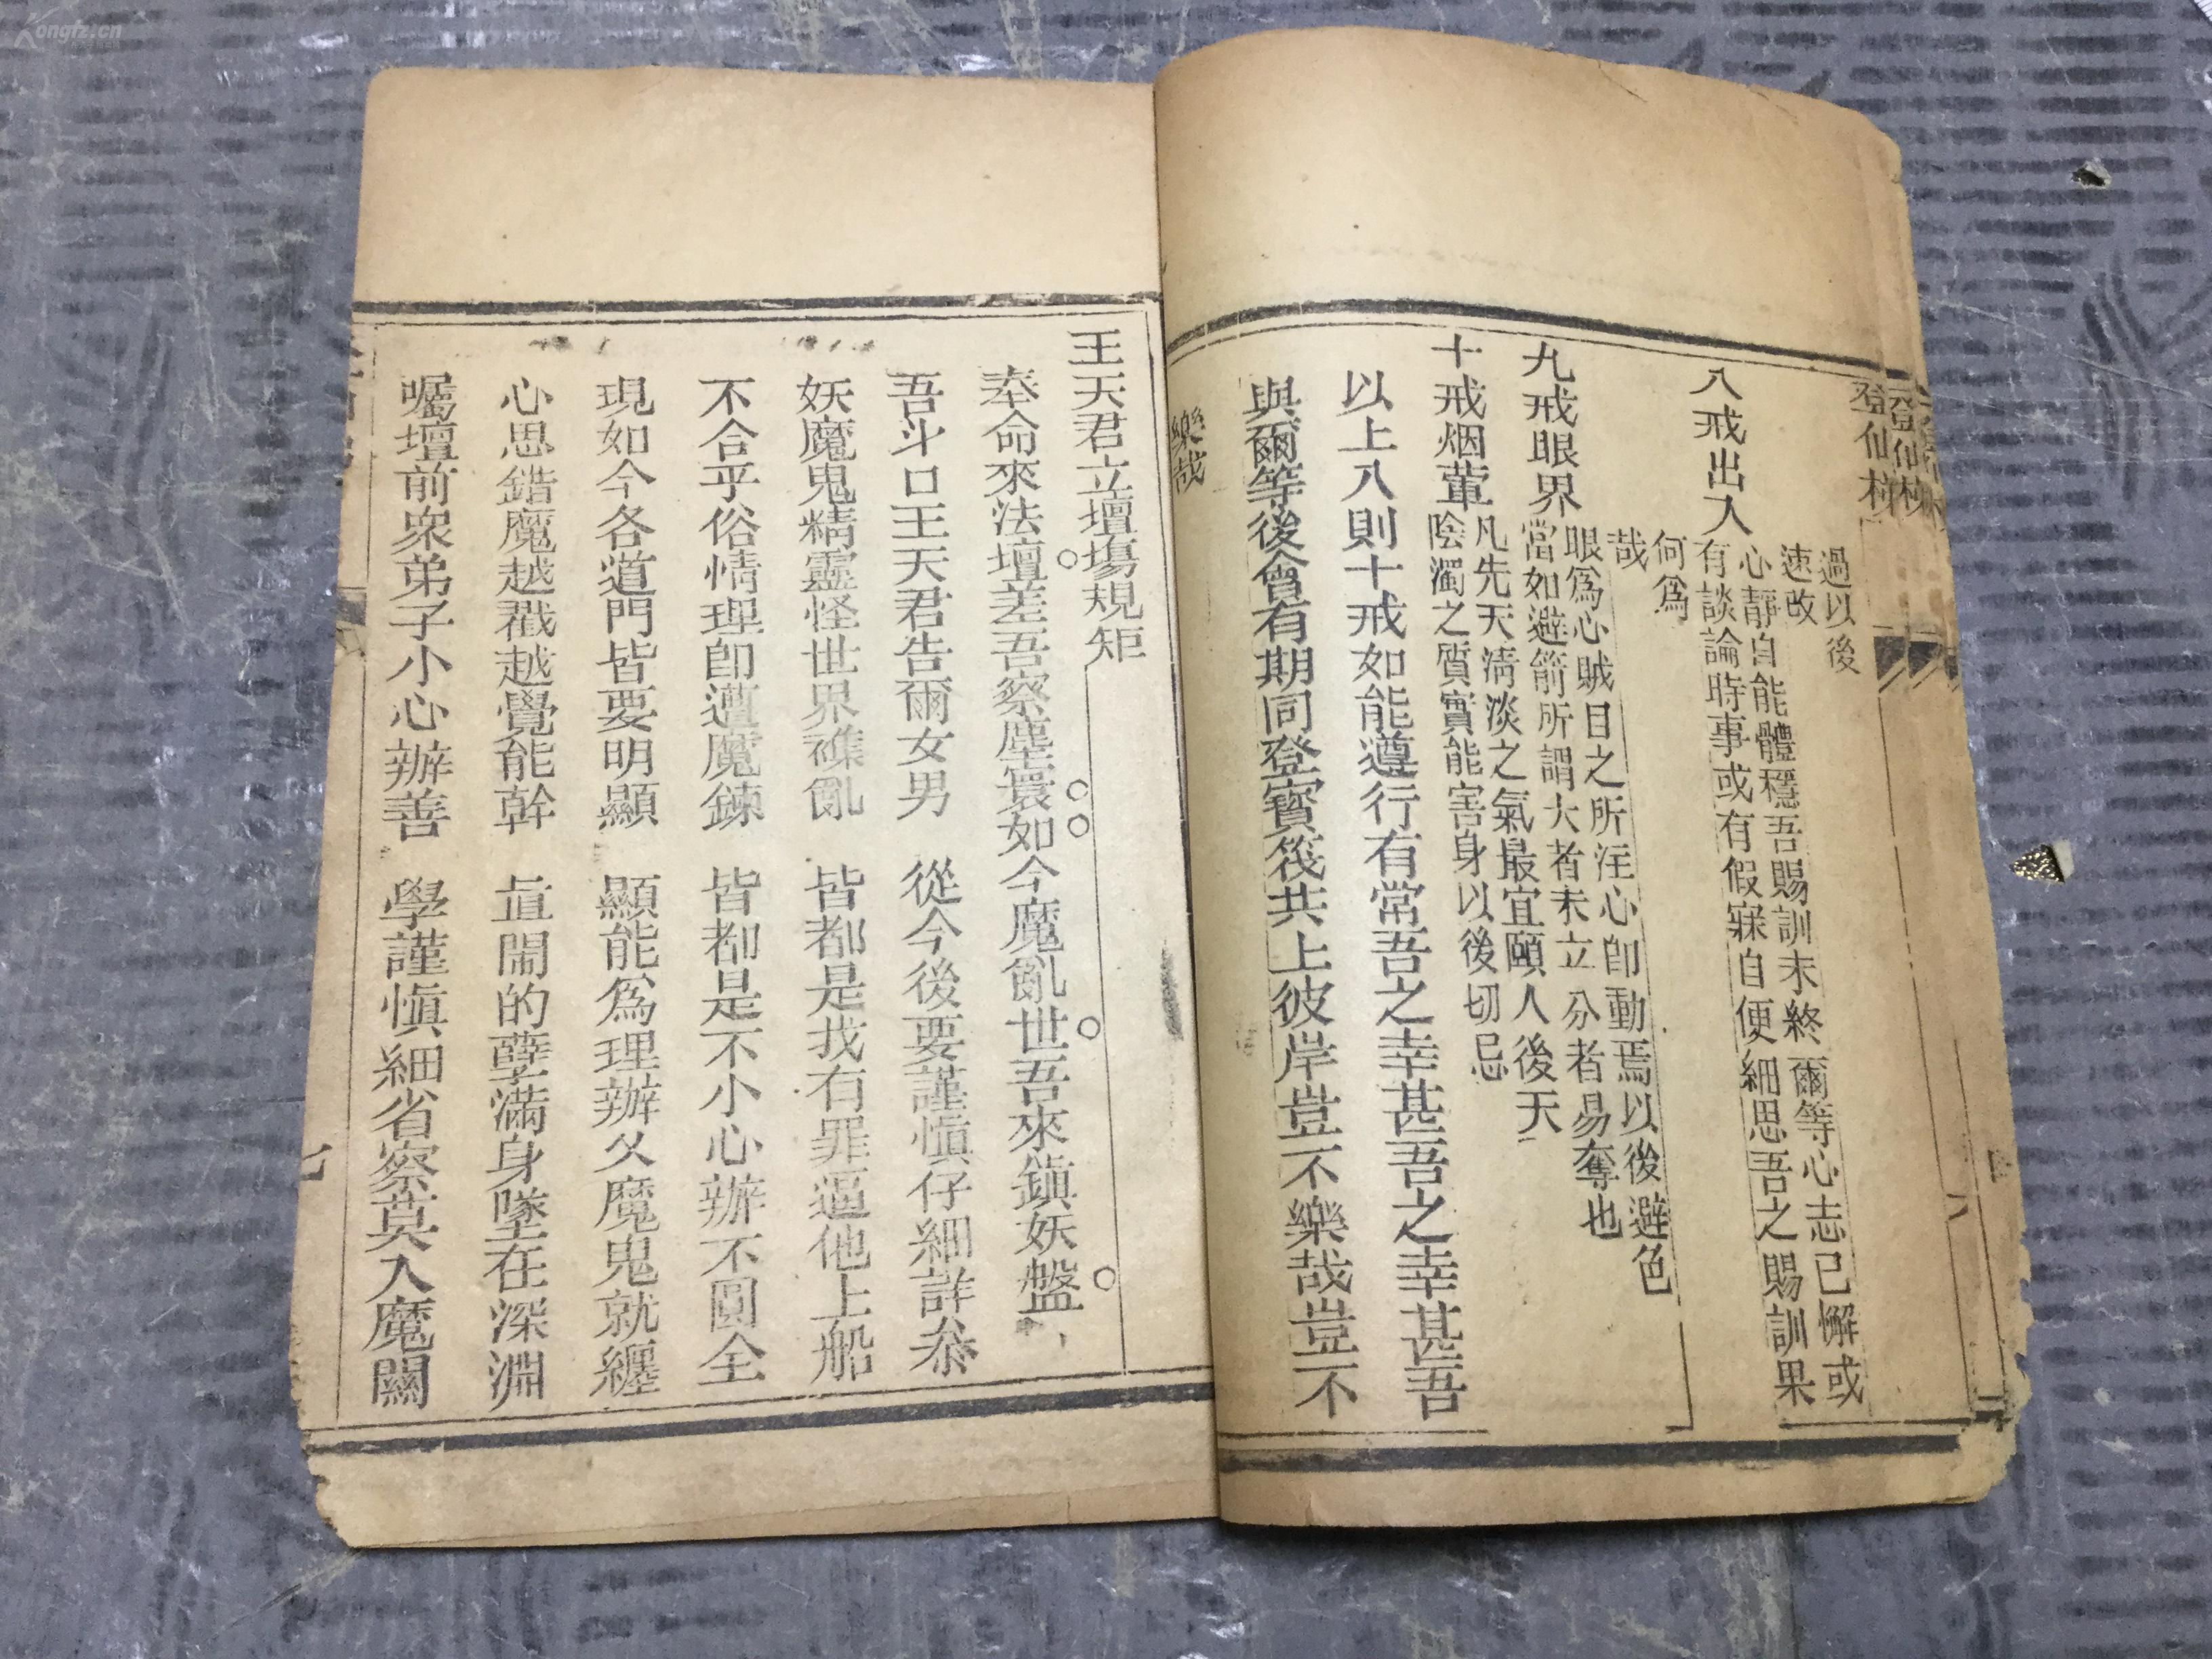 登仙梯
過以後
速改
八戒出入
心靜自能體穩吾賜訓未終爾等心志已懈或
有談論時事或有假寐自便細思吾之賜訓果
何爲
哉
九戒眼界
眼爲心賊目之所注心卽動焉以後避色
當如避箭所謂大者未立分者易奪也
十戒烟葷
凡先天淸淡之氣最宜頤人後天
陰濁之質實能害身以後切忌
以上八則十戒如能遵行有常吾之幸甚吾之幸甚吾
與爾等後會有期同登寳筏共上彼岸豈不樂哉豈不
樂哉
王天君立壇塲規矩
奉命來法壇差吾察塵寰如今魔亂世吾來鎭妖盤
吾斗口王天君告爾女男 從今後要謹愼仔細詳叅
妖魔鬼精靈怪世界襍亂 皆都是找有罪逼他上船
不合乎俗情理卽遭魔鍊 皆都是不小心辦不圓全
現如今各道門皆要明顯 顯能爲理辦欠魔鬼就纏
心思錯魔越戳越覺能幹 直鬧的孽滿身墜在深淵
囑壇前衆弟子小心辦善 學謹愼細省察莫入魔關
七
Kongfz.cn